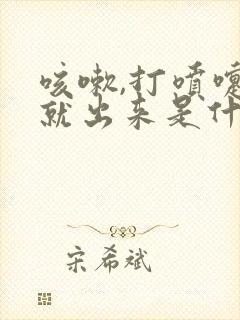 咳嗽,打喷嚏
就出来是什
宋希斌